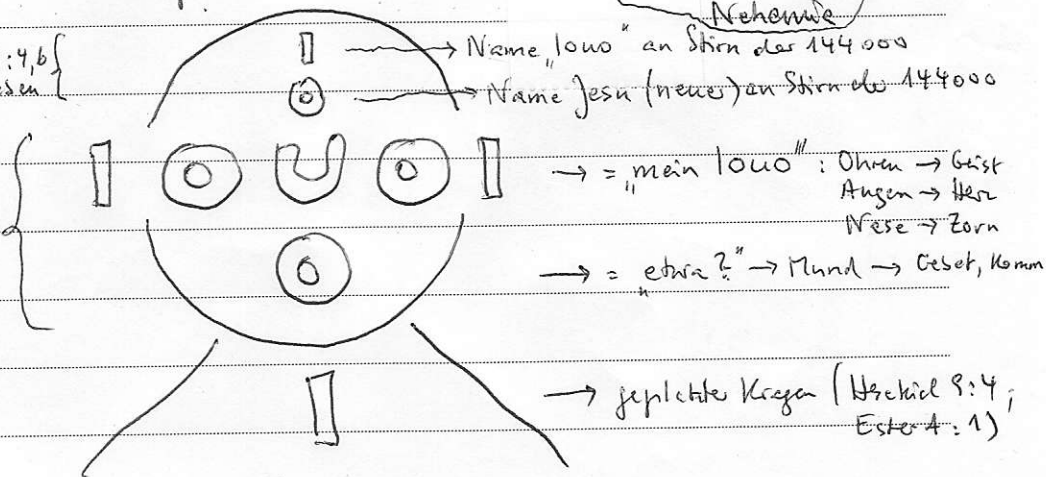 Nehemia
:4,6
Name „IOUO" an Stirn der 144 000
Name Jesu (neuer) an Stirn der 144000
I O U O I → = „mein IOUO" : Ohren → Geist
Augen → Herz
Nase → Zorn
→ = „etwa?" → Mund → Gebet, Komm
→ geplatzter Kragen (Hesekiel 9:4;
Ester 4:1)